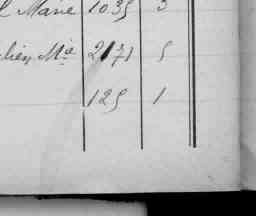 Marie 1035 3
lien Mie 2171 5
125 1